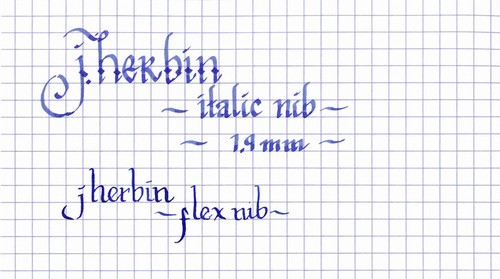 j.herbin
~ italic nib ~
~ 1,9 mm ~
jherbin
~ flex nib ~